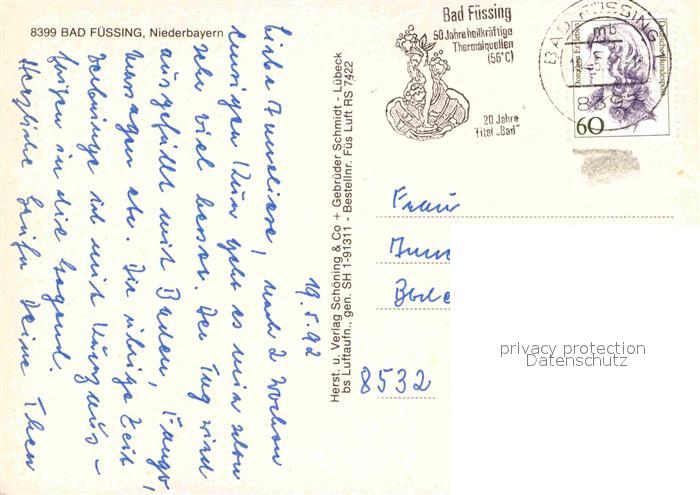 8399 BAD FÜSSING, Niederbayern
Liebe Anneliese! nach 2 Wochen
hiesigen Kur geht es mir schon
sehr viel besser. Der Tag wird
ausgefüllt mit Baden, Fango,
Massagen etc. Die übrige Zeit
verbringe ich mit Kurzaus-
flügen in die Gegend.
Herzliche Grüße Deine Thea
19.5.92
Herst. u. Verlag Schöning & Co + Gebrüder Schmidt - Lübeck
bs Luftaufn., gen. SH 1-91311 - Bestellnr. Füs Luft RS 7422
Bad Füssing
50 Jahre heilkräftige
Thermalquellen
(56°C)
20 Jahre
Titel „Bad"
BAD FÜSSING
mb
Dorothea Erxleben
Deutsche Bundespost
60
Frau
8532
privacy protection
Datenschutz